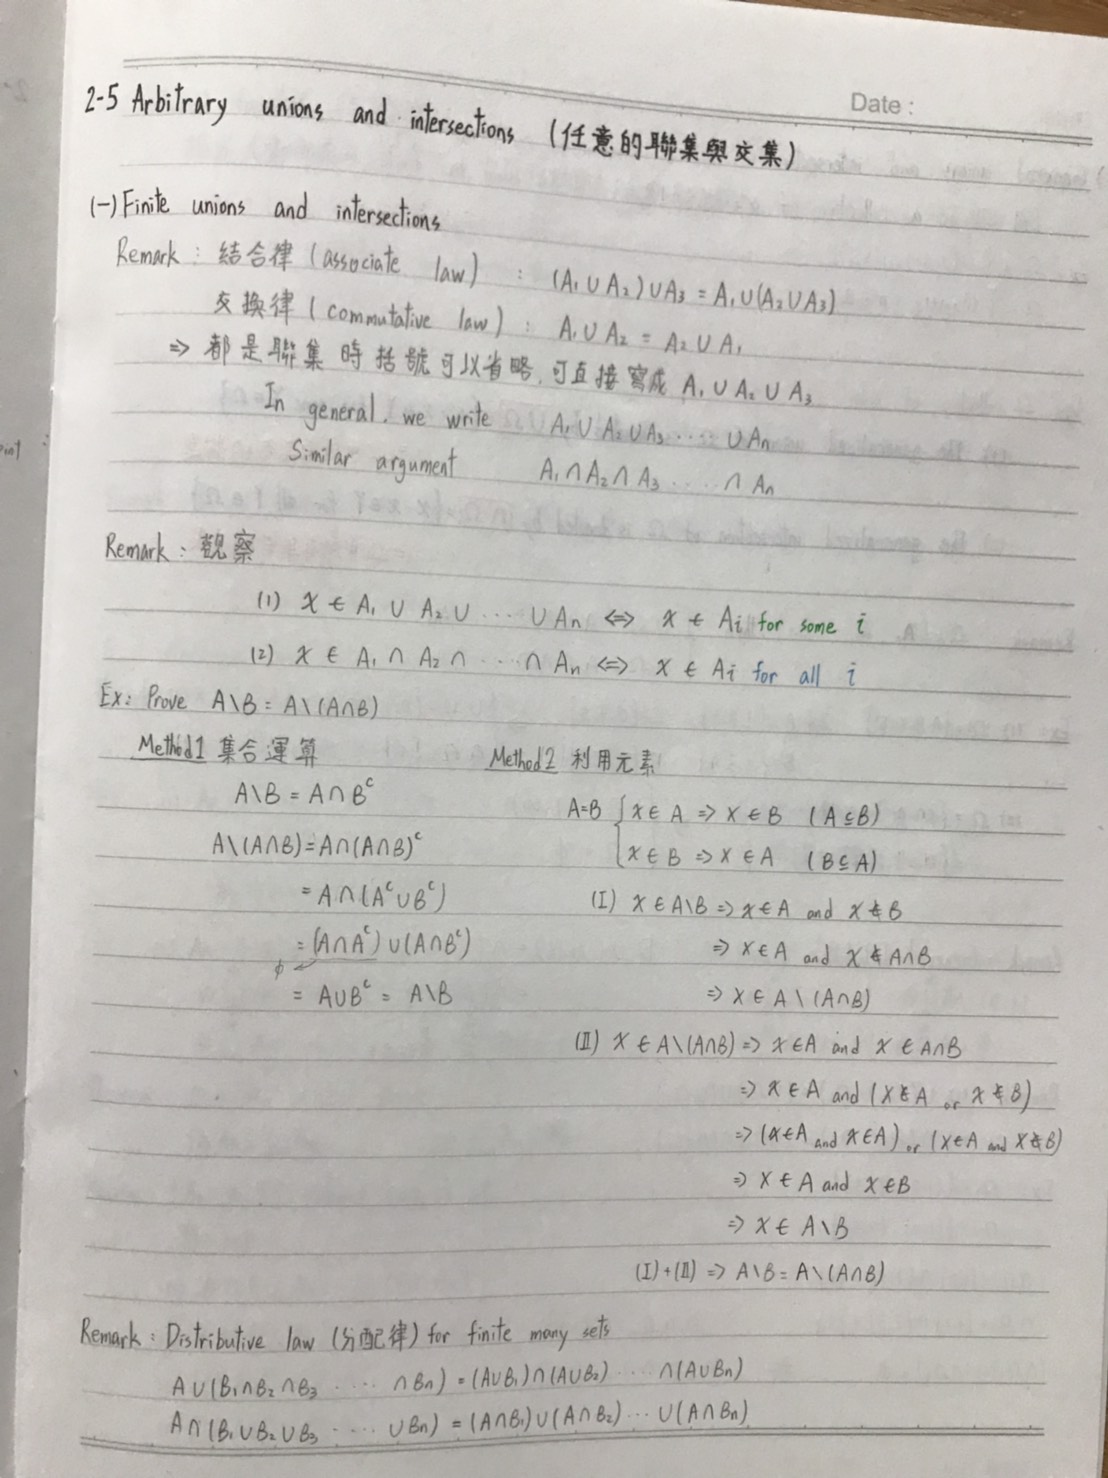 Date :
2-5 Arbitrary unions and intersections (任意的聯集與交集)
(一) Finite unions and intersections
Remark : 結合律 (associate law) : (A₁ ∪ A₂) ∪ A₃ = A₁ ∪ (A₂ ∪ A₃)
交換律 (commutative law) : A₁ ∪ A₂ = A₂ ∪ A₁
⇒ 都是聯集時括號可以省略,可直接寫成 A₁ ∪ A₂ ∪ A₃
In general, we write A₁ ∪ A₂ ∪ A₃ ... ∪ Aₙ
Similar argument A₁ ∩ A₂ ∩ A₃ .... ∩ Aₙ
Remark : 觀察
(1) x ∈ A₁ ∪ A₂ ∪ ... ∪ Aₙ ⇔ x ∈ Aᵢ for some i
(2) x ∈ A₁ ∩ A₂ ∩ ... ∩ Aₙ ⇔ x ∈ Aᵢ for all i
Ex: Prove A\B = A\(A∩B)
Method1 集合運算
A\B = A∩Bᶜ
A\(A∩B) = A∩(A∩B)ᶜ
= A∩(Aᶜ∪Bᶜ)
= (A∩Aᶜ)∪(A∩Bᶜ)
ϕ
= A∪Bᶜ = A\B
Method2 利用元素
A=B { x ∈ A ⇒ x ∈ B (A⊆B)
x ∈ B ⇒ x ∈ A (B⊆A)
(I) x ∈ A\B ⇒ x ∈ A and x ∉ B
⇒ x ∈ A and x ∉ A∩B
⇒ x ∈ A \ (A∩B)
(II) x ∈ A\(A∩B) ⇒ x ∈ A and x ∈ A∩B
⇒ x ∈ A and (x ∉ A or x ∉ B)
⇒ (x∈A and x∈A) or (x∈A and x∉B)
⇒ x ∈ A and x ∈ B
⇒ x ∈ A\B
(I)+(II) ⇒ A\B = A\(A∩B)
Remark : Distributive law (分配律) for finite many sets
A∪(B₁∩B₂∩B₃ .... ∩Bₙ) = (A∪B₁)∩(A∪B₂) .... ∩(A∪Bₙ)
A∩(B₁∪B₂∪B₃ .... ∪Bₙ) = (A∩B₁)∪(A∩B₂) ... ∪(A∩Bₙ)